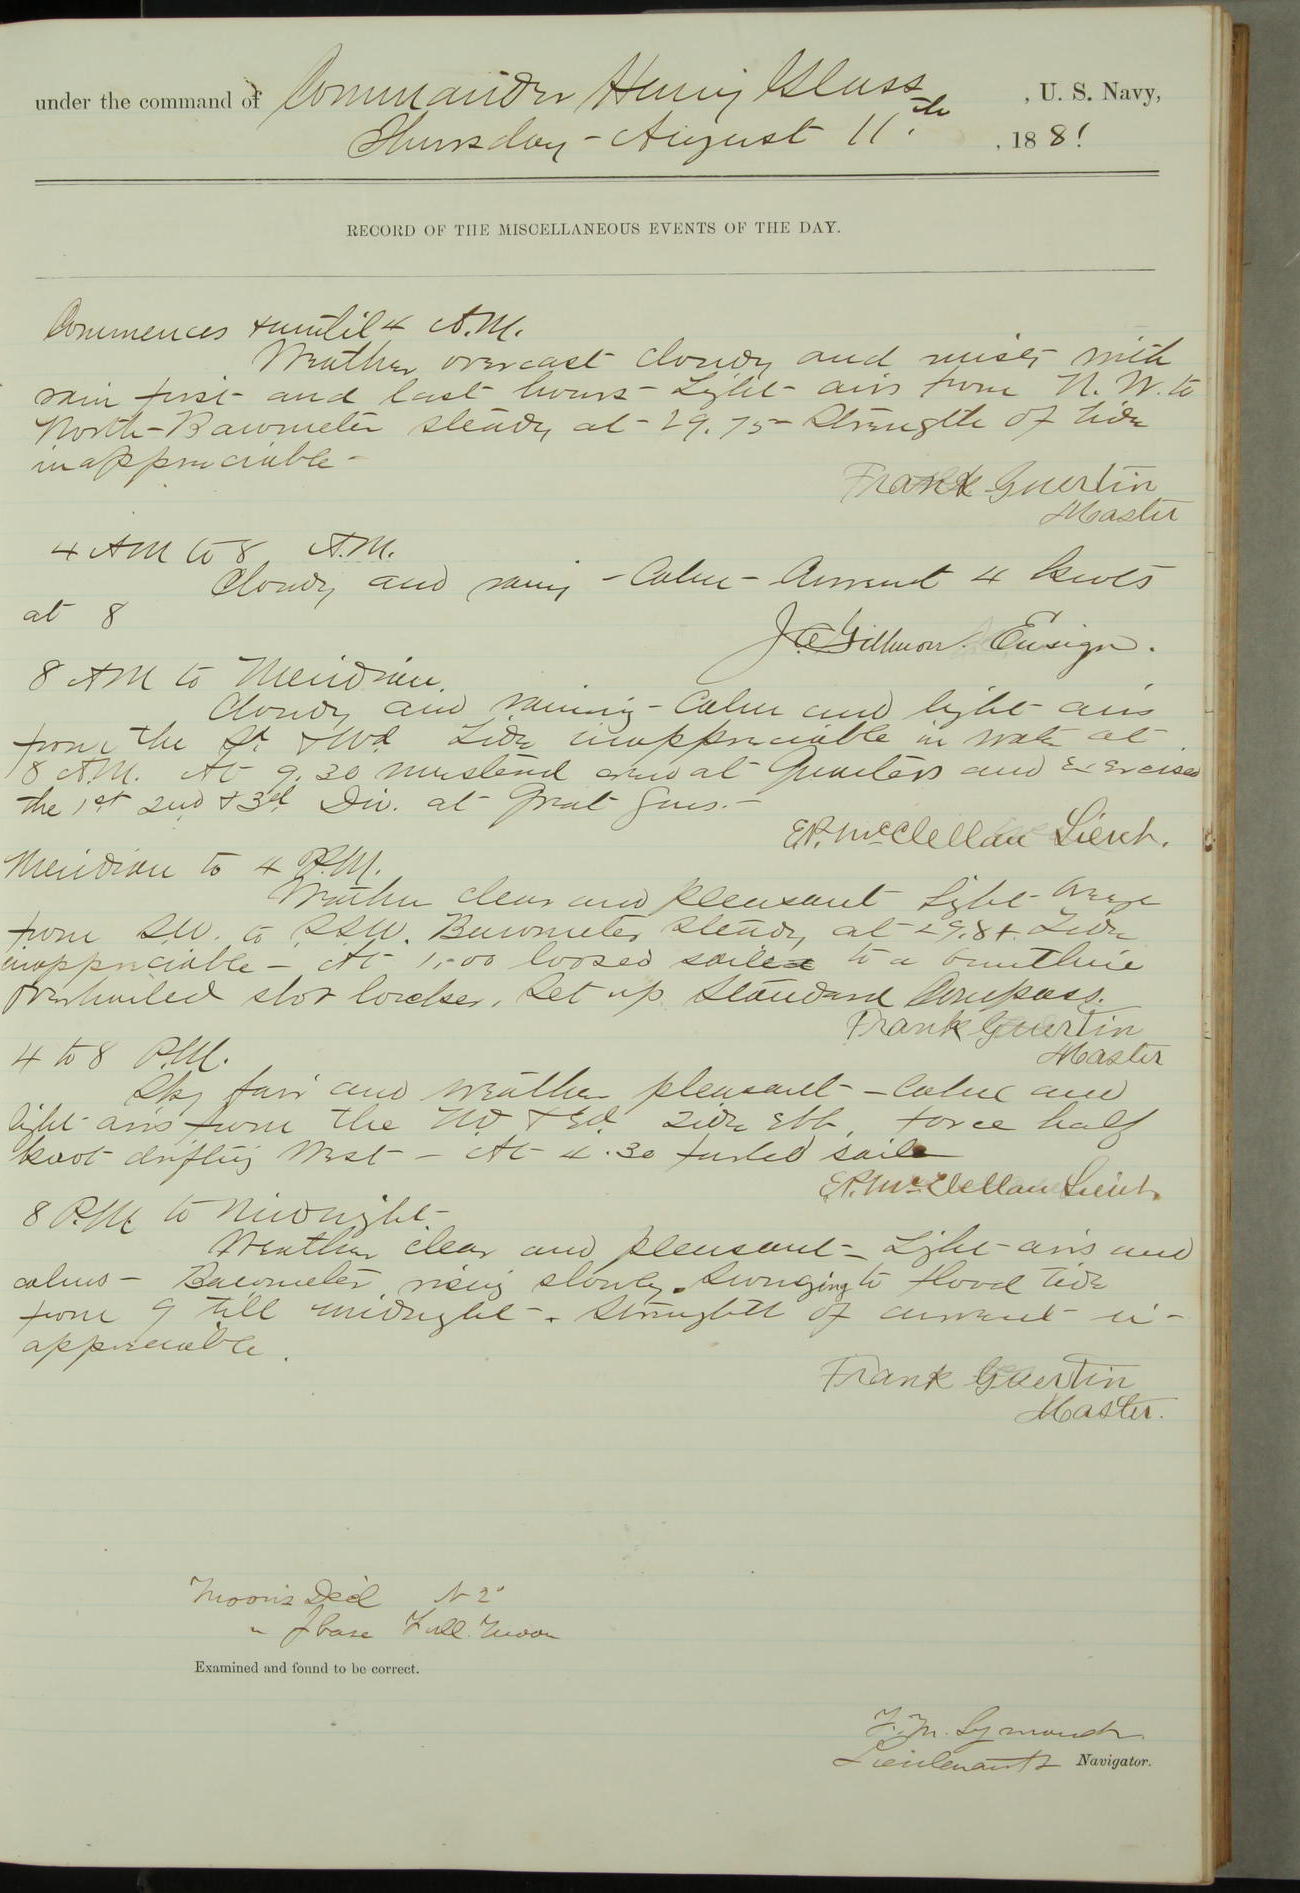 under the command of Commander Henry Glass, U. S. Navy,
Thursday - August 11th, 1881
RECORD OF THE MISCELLANEOUS EVENTS OF THE DAY.
Commences & until 4 A.M.
Weather overcast cloudy and misty with
rain first and last hours - Light airs from N. W. to
North - Barometer steady at - 29.75 - Strength of tide
inappreciable -
Frank Guertin
Master
4 AM to 8 A.M.
Cloudy and rainy - Calm - Current 4 knots
at 8
J.C. Gillmore. Ensign.
8 AM to Meridian.
Cloudy and raining - Calm and light airs
from the Sd & Wd Tide inappreciable in water at
8 A.M. At 9.30 mustered crew at Quarters and Exercised
the 1st 2nd & 3d Div. at Great Guns. -
E.P. McClellan Lieut.
Meridian to 4 P.M.
Weather clear and pleasant Light breeze
from S.W. to S.S.W. Barometer steady at 29.84. Tide
inappreciable - At 1.00 loosed sails to a bowline
Overhauled shot locker. Set up Standard Compass.
Frank Guertin
Master
4 to 8 P.M.
Sky fair and weather pleasant - Calm and
light airs from the Nd & Ed. Tide Ebb, force half
knot drifting West - At 4.30 furled sails
E.P. McClellan Lieut.
8 P.M. to Midnight -
Weather clear and pleasant - Light airs and
calms - Barometer rising slowly. Swinging to flood tide
from 9 till midnight -. Strength of current in-
appreciable.
Frank Guertin
Master.
Moon's Decl N 2°
" Phase Full Moon
Examined and found to be correct.
F. M. Symonds
Lieutenant & Navigator.